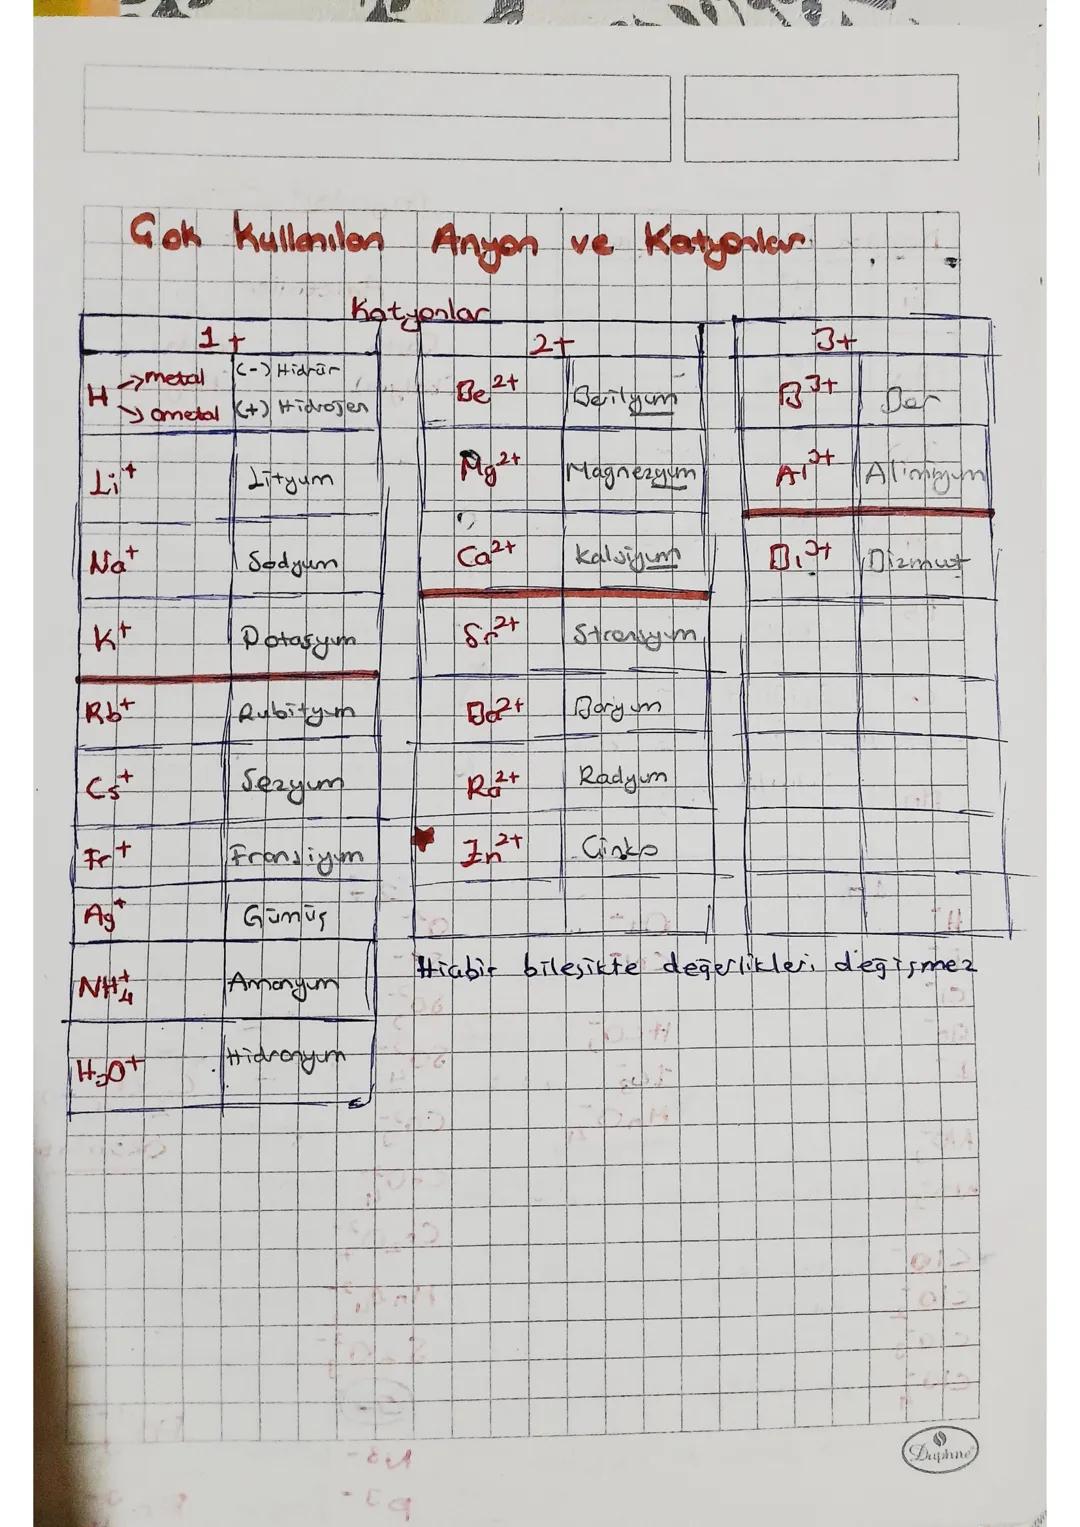 Çok Kullanılan Anyon ve Katyonlar
Katyonlar
1+
H → metal (-) Hidrür
→ ametal (+) Hidrojen
Li+ Lityum
Na+ Sodyum
K+ Potasyum
Rb+ Rubityum
Cs+ Sezyum
Fr+ Fransiyum
Ag+ Gümüş
NH4+ Amonyum
H3O+ Hidronyum
2+
Be2+ Berilyum
Mg2+ Magnezyum
Ca2+ Kalsiyum
Sr2+ Stronsyum
Ba2+ Baryum
Ra2+ Radyum
Zn2+ Çinko
3+
B3+ Bor
Al3+ Aliminyum
Bi3+ Bizmut
Hiçbir bileşikte değerlikleri değişmez
Daphne